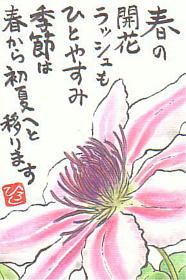 春の
開花
ラッシュも
ひとやすみ
季節は
春から初夏へと
移ります
ひろ